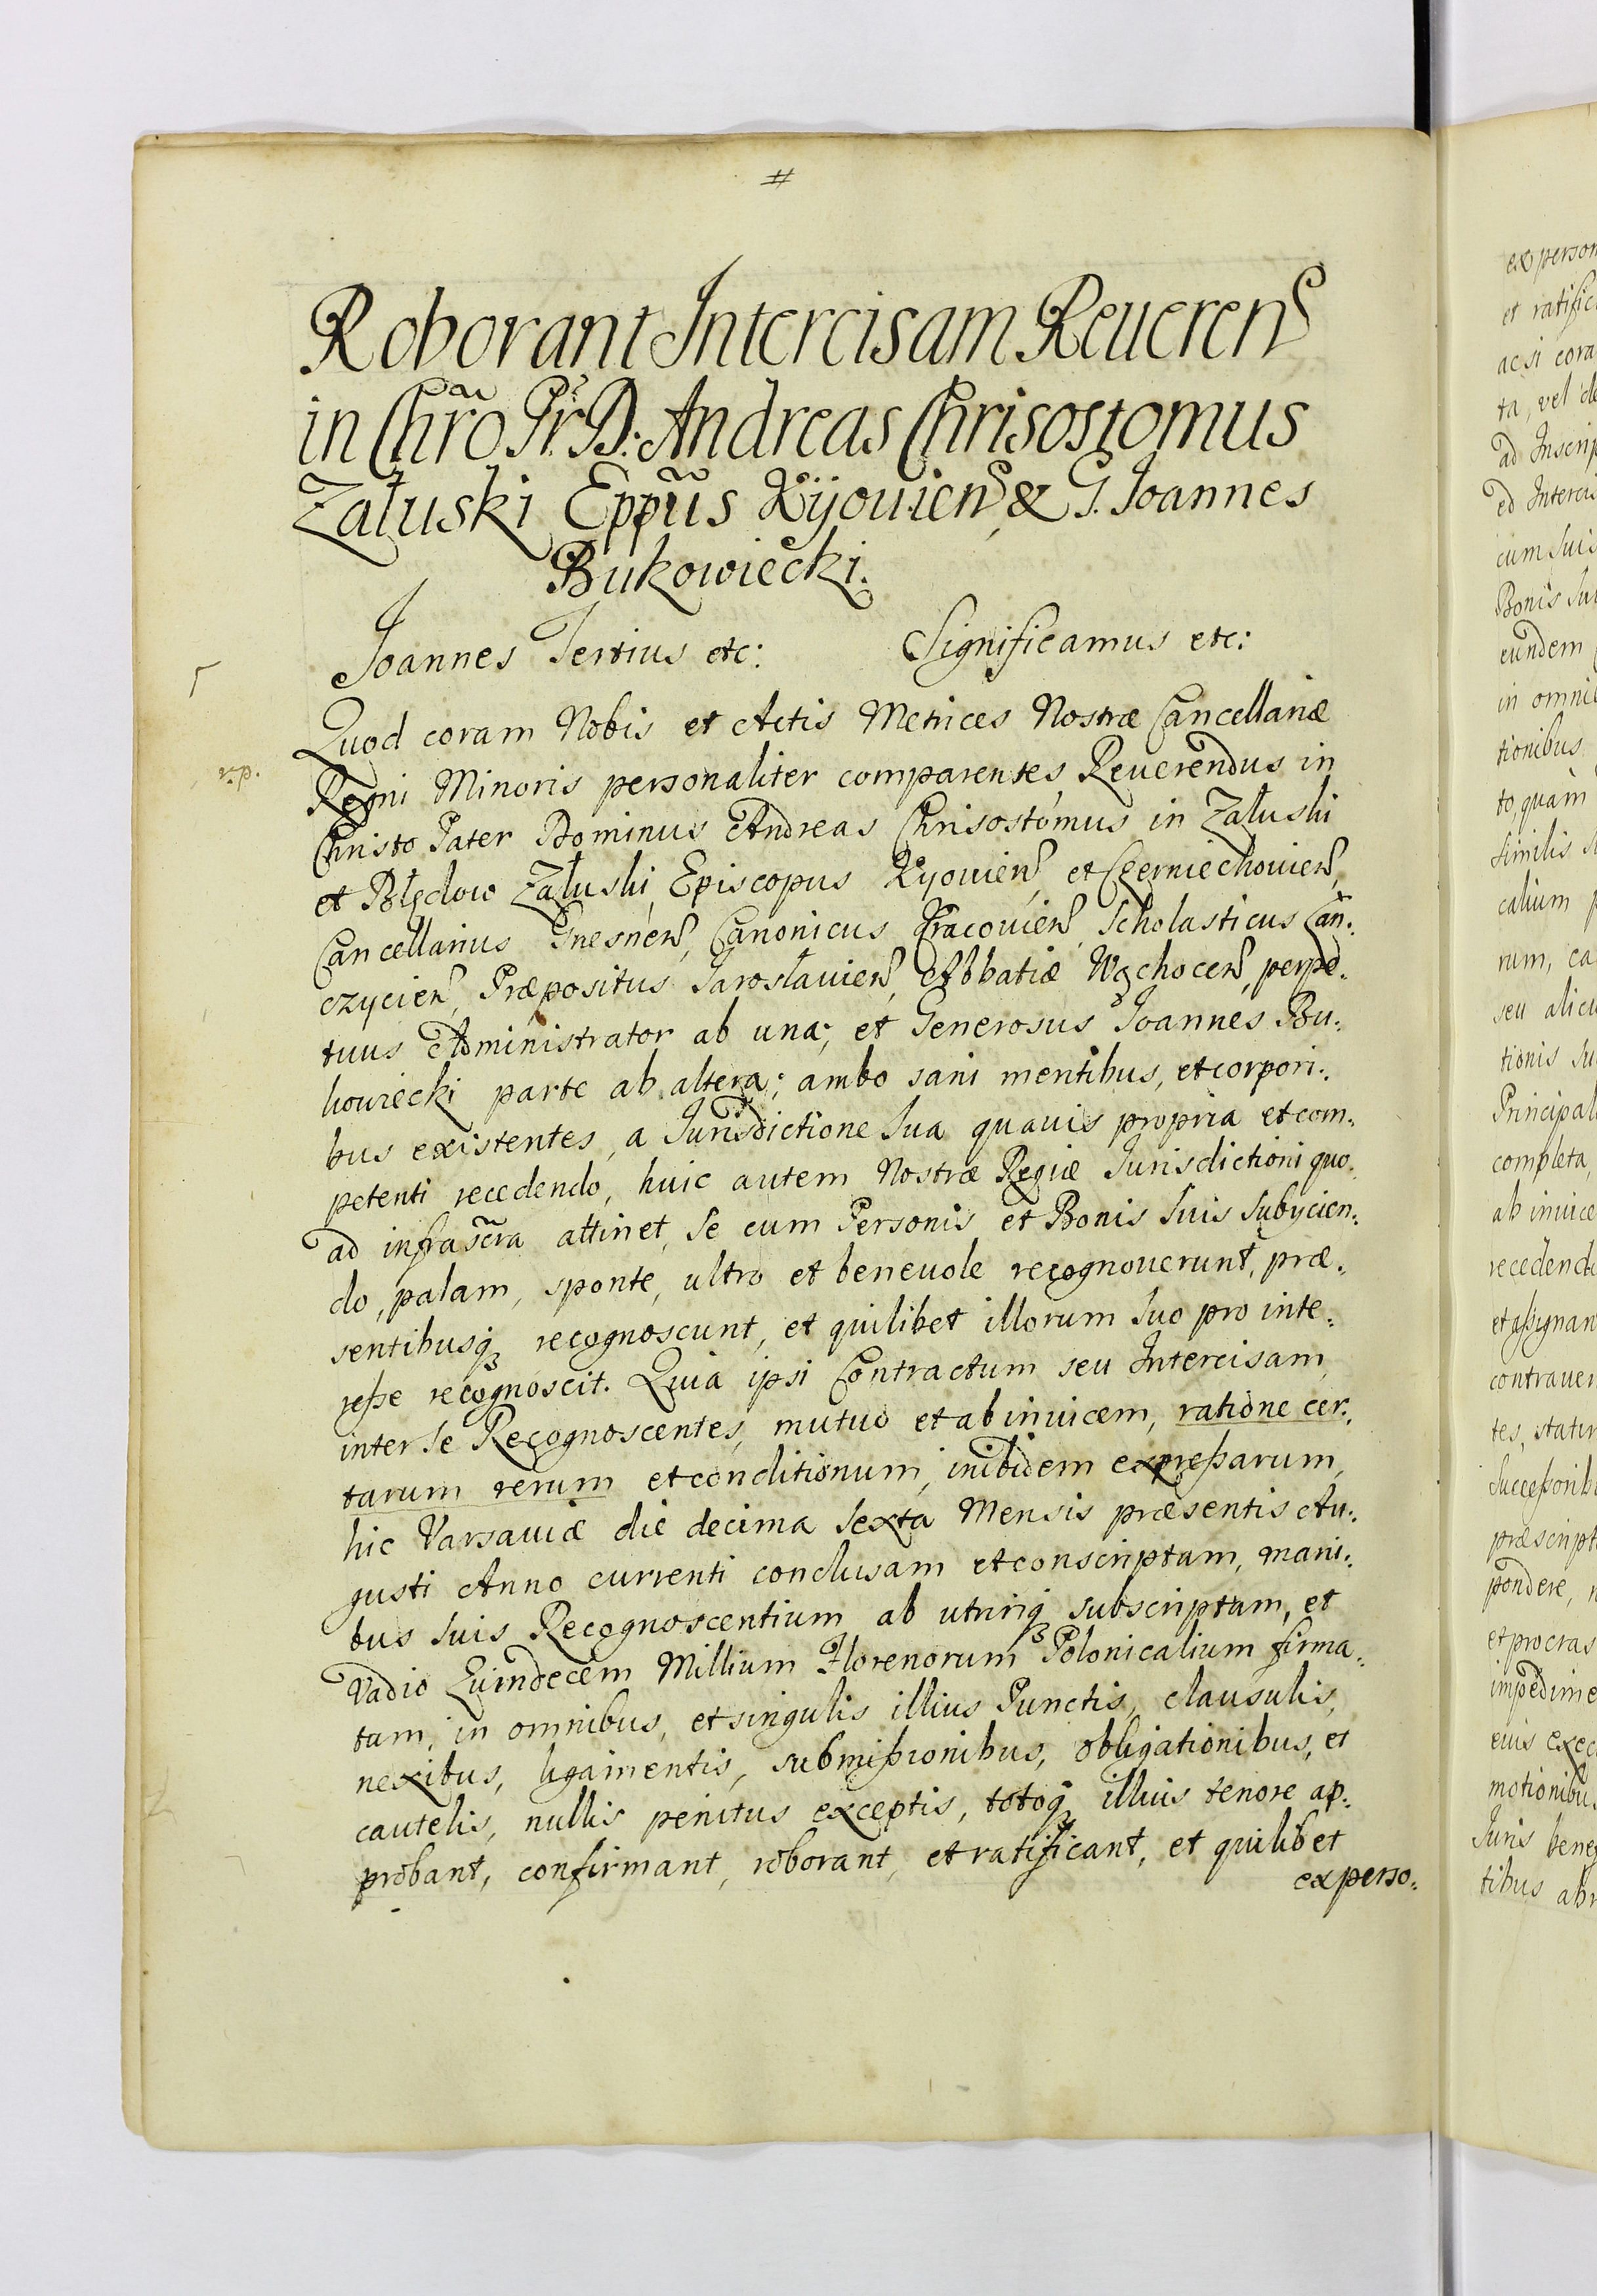 #
Roborant Intercisam Reueren͂
in Chr̃o Pr̃ D: Andreas Chrisostomus
Załuski Epp̃us Kijouien͂ & G. Joannes
Bukowiecki.
Joannes Tertius etc: Significamus etc:
Quod coram Nobis et Actis Metrices Nostræ Cancellariæ
r.p.
Regni Minoris personaliter comparentes, Reuerendus in
Christo Pater Dominus Andreas Chrisostomus in Załuski
et Błędow Załuski, Episcopus Kyouien͂, et Czerniechouien͂,
Cancellarius Gnesnen͂, Canonicus Cracouien͂, Scholasticus Łan:
czycien͂, Præpositus Jarosłauien͂, Abbatiæ Wąchocen͂, perpe:
tuus Administrator ab una; et Generosus Joannes Bu:
kowiecki parte ab altera; ambo sani mentibus, et corpori:
bus existentes, a Jurisdictione Sua quauis propria et com:
petenti recedendo, huic autem Nostræ Regiæ Jurisdictioni quo:
ad infrascr̃a attinet, Se cum Personis et Bonis Suis Subijcien:
do, palam, sponte, ultro et beneuole recognouerunt, præ:
sentibusq3 recognoscunt, et quilibet illorum Suo pro inte:
reße recognoscit. Quia ipsi Contractum seu Intercisam
inter Se Recognoscentes, mutuo et ab inuicem, ratione cer:
tarum rerum et conditionum, inibidem expreßarum,
hic Varsauiæ die decima Sexta Mensis præsentis Au:
gusti Anno currenti conclusam et conscriptam, mani:
bus Suis Recognoscentium ab utrinq3 subscriptam, et
Vadio Quindecem Millium Florenorum Polonicalium firma:
tam, in omnibus, et singulis illius Punctis, clausulis,
nexibus, ligamentis, submißionibus, obligationibus, et
cautelis, nullis penitus exceptis, totoq3 illius tenore ap:
probant, confirmant, roborant, et ratificant, et quilibet
ex perso:
ex person
et ratific
ac si cora
ta, vel de
ad Inscrip
ed Interci
cum Suis
Bonis Sui
eundem
in omni
tionibus
to, quam
Similis
calium
rum, ca
seu alicu
tionis Su
Principal
completa,
ab inuice
recedendo
et aßignan
contrauen
tes, statim
Succeßorib
præscript
pondere,
et procras
impedime
eius exec
motionibu
Juris bene
tibus ab